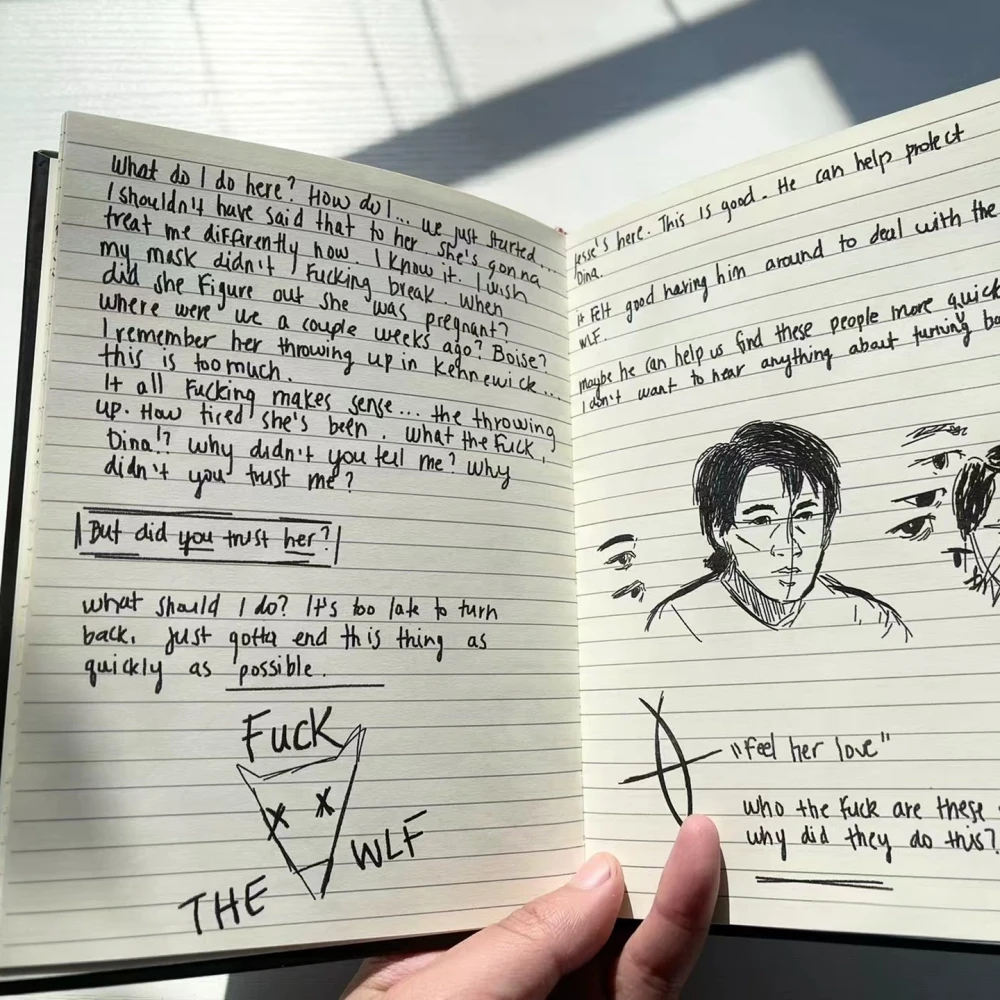 What do I do here? How do I... we just started...
I shouldn't have said that to her. She's gonna
treat me differently now. I know it. I wish
my mask didn't fucking break. When
did she figure out she was pregnant?
Where were we a couple weeks ago? Boise?
I remember her throwing up in Kennewick...
this is too much.
It all fucking makes sense... the throwing
up. How tired she's been. What the fuck,
Dina!? Why didn't you tell me? Why
didn't you trust me?
But did you trust her?
What should I do? It's too late to turn
back. Just gotta end this thing as
quickly as possible.
Fuck
THE WLF
Jesse's here. This is good. He can help protect
Dina.
It felt good having him around to deal with the
WLF.
maybe he can help us find these people more quick
I don't want to hear anything about turning ba
"Feel her love"
who the fuck are these
why did they do this?